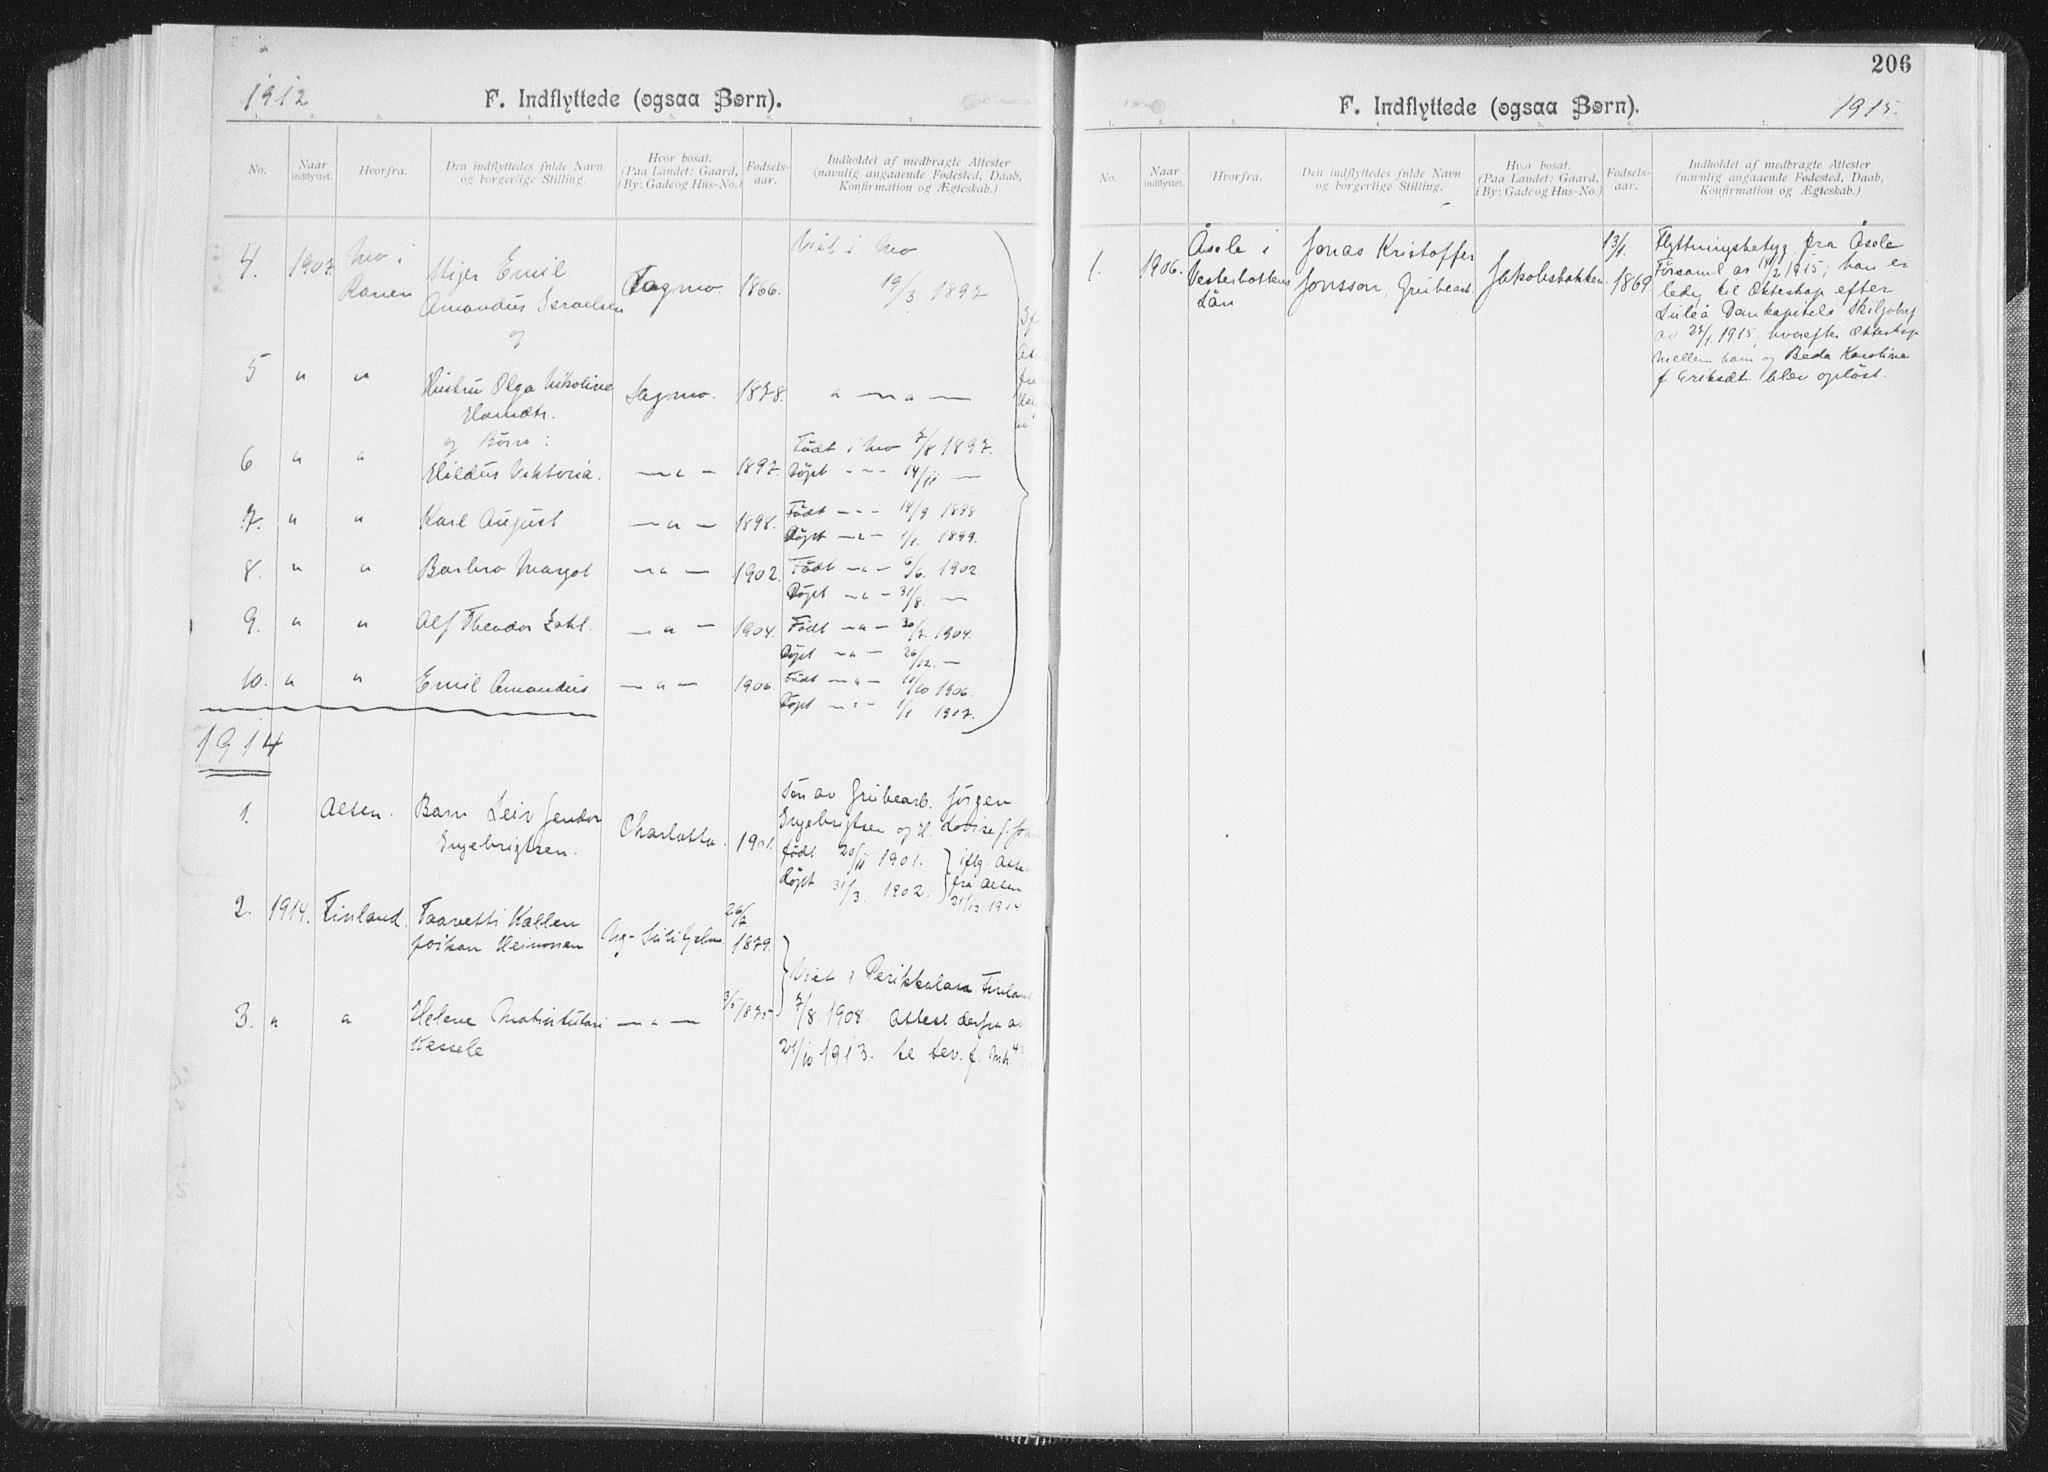 1912
F. Indflyttede (ogsaa Børn).
1. 2. 3. 4. 5. 6. 7.
No.
Naar indflyttet.
Hvorfra.
Den indflyttedes fulde Navn
og borgerlige Stilling.
Hvor bosat.
(Paa Landet: Gaard,
i By: Gade og Hus-No.)
Fødsels-
aar.
Indholdet af medbragte Attester
(navnlig angaaende Fødested, Daab,
Konfirmation og Ægteskab.)
4. 1907. Mo i Emil Viet i Mo
Ranen Amandus Israelsen Fagmo. 1866. 19/3 1897
og
5 " " Hustru Olga Nikoline Fagmo. 1878. " — " —
Hansdtr.
og Børn:
6 " " Hildus Viktoria. — " — 1897. Født i Mo 7/8 1897.
Døpt - - - 14/11 —
7. " " Karl August — " — 1898. Født - - - 14/9 1898
Døpt — " — 1/1. 1899.
8. " " Barbro Margot — " — 1902. Født — " — 6/6. 1902.
Døpt — " — 31/8. —
9. " " Alf Theodor Zahl. — " — 1904. Født — " — 30/7. 1904.
Døpt — " — 26/12. —
10. " " Emil Amandus — " — 1906. Født — " — 11/10 1906.
Døpt — " — 1/1 1907.
1914
1. Alten. Barn Leiv Jendor Charlotta. 1901. Søn av Grubearb. Jørgen
Ingebrigtsen. Ingebrigtsen og H. Lovise f.
født 20/11 1901. iflg.
døpt 31/3. 1902. fra Alten
31/12 1914
2. 1914. Finland. Taavetti Kallen Ny-Sulitjelma 26/7 1879.
poikan Heinonen
3. " " Helene — " — 3/5 1875 Viet i Finland
Kessele 7/8. 1908. Attest derfra av
21/10 1913. se lev. f.
206
F. Indflyttede (ogsaa Børn).
1915.
1. 2. 3. 4. 5. 6. 7.
No.
Naar indflyttet.
Hvorfra.
Den indflyttedes fulde Navn
og borgerlige Stilling.
Hvor bosat.
(Paa Landet: Gaard,
i By: Gade og Hus-No.)
Fødsels-
aar.
Indholdet af medbragte Attester
(navnlig angaaende Fødested, Daab,
Konfirmation og Ægteskab.)
1. 1906. Åsele i Jonas Kristoffer Jakobsbakken 13/1. 1869. Flyttningsbetyg fra Åsele
Vesterbottens Jonsson, Grubearb. Församl av 14/2 1915; han er
Län ledig til Ekteskap efter
Luleå Domkapitels Skiljobref
av 27/1. 1915, hvorefter Ekteskap
mellem ham og Beda Karolina
f. Eriksdtr. blev opløst.